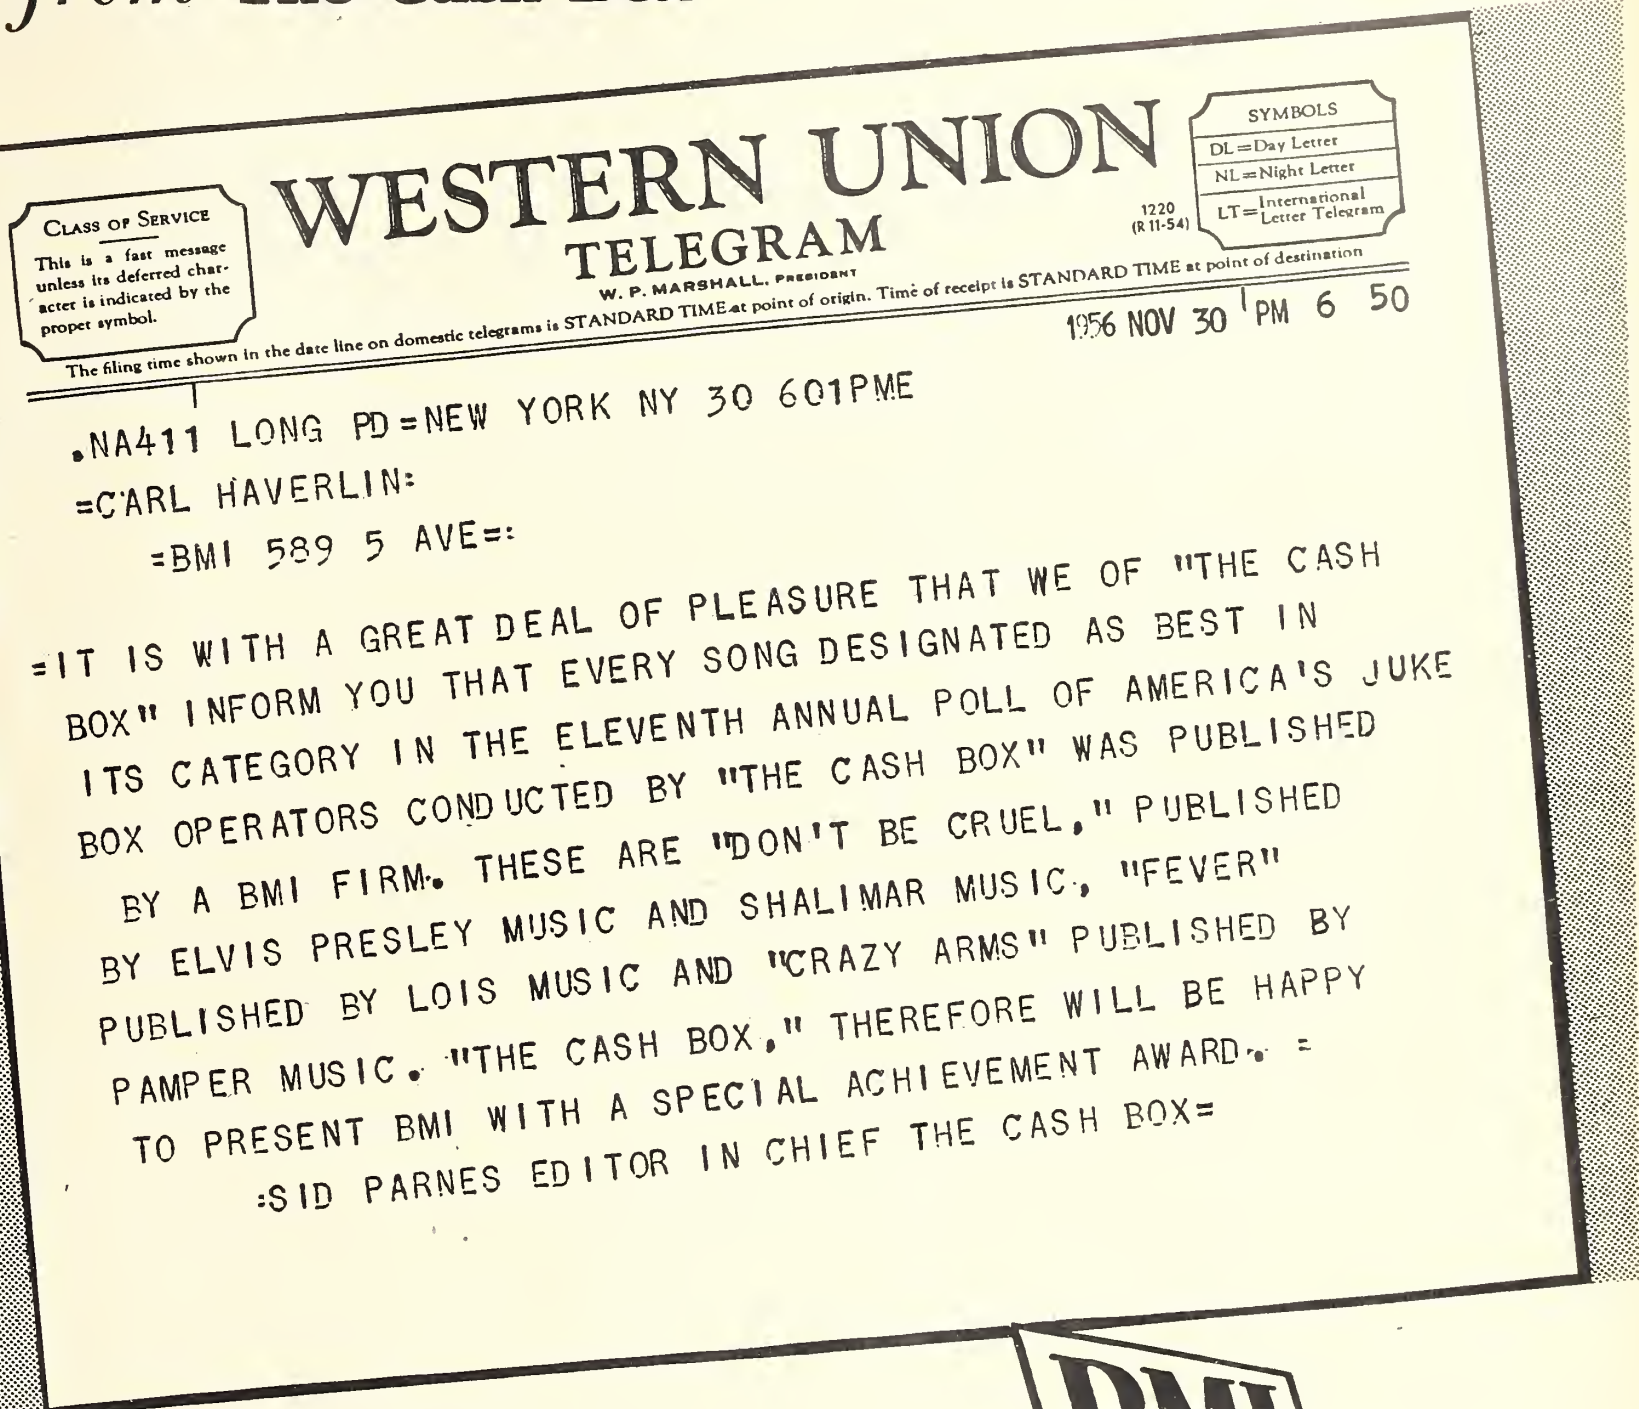 from
WESTERN UNION
TELEGRAM
W. P. MARSHALL, PRESIDENT
1220
(R 11-54)
CLASS OF SERVICE
This is a fast message
unless its deferred char-
acter is indicated by the
proper symbol.
SYMBOLS
DL=Day Letter
NL=Night Letter
LT=International
Letter Telegram
The filing time shown in the date line on domestic telegrams is STANDARD TIME at point of origin. Time of receipt is STANDARD TIME at point of destination
1956 NOV 30 PM 6 50
.NA411 LONG PD=NEW YORK NY 30 601PME
=CARL HAVERLIN:
=BMI 589 5 AVE=:
=IT IS WITH A GREAT DEAL OF PLEASURE THAT WE OF "THE CASH
BOX" INFORM YOU THAT EVERY SONG DESIGNATED AS BEST IN
ITS CATEGORY IN THE ELEVENTH ANNUAL POLL OF AMERICA'S JUKE
BOX OPERATORS CONDUCTED BY "THE CASH BOX" WAS PUBLISHED
BY A BMI FIRM. THESE ARE "DON'T BE CRUEL," PUBLISHED
BY ELVIS PRESLEY MUSIC AND SHALIMAR MUSIC, "FEVER"
PUBLISHED BY LOIS MUSIC AND "CRAZY ARMS" PUBLISHED BY
PAMPER MUSIC. "THE CASH BOX," THEREFORE WILL BE HAPPY
TO PRESENT BMI WITH A SPECIAL ACHIEVEMENT AWARD. =
=SID PARNES EDITOR IN CHIEF THE CASH BOX=
BMI